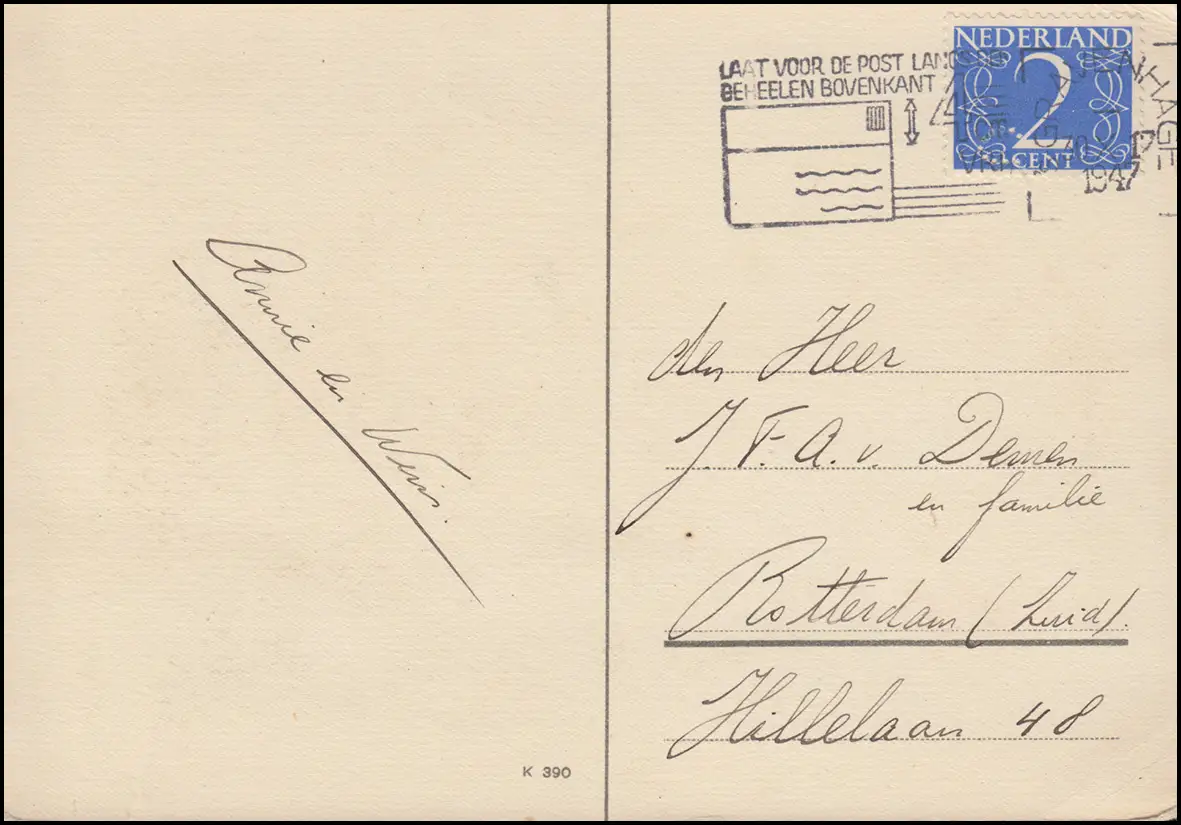 Annie en Wim.
K 390
LAAT VOOR DE POST LANGS DEN
GEHEELEN BOVENKANT
NEDERLAND
2
CENT
1947
den Heer
J. F. A. v. Demen
en familie
Rotterdam (Zuid).
Hillelaan 48